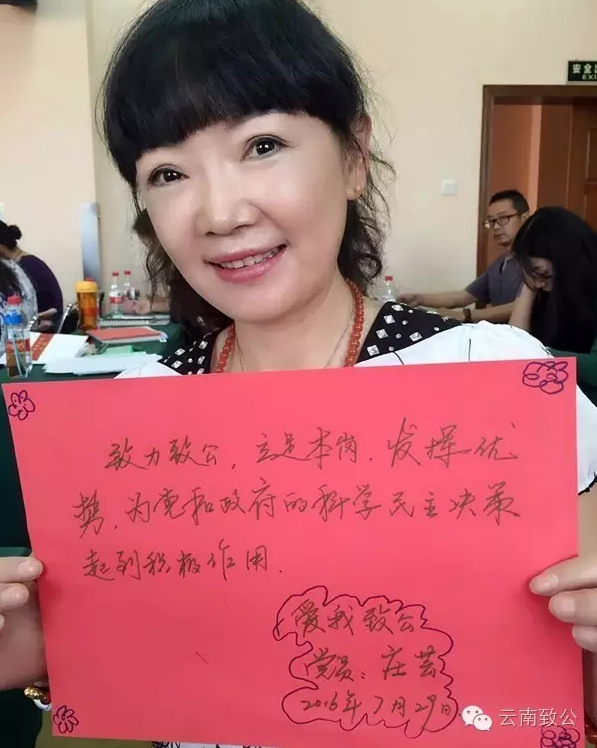 安全出
EXI
致力致公，立足本岗，发挥优
势，为党和政府的科学民主决策
起到积极作用.
爱我致公
党员：庄芸
2016年7月29日
云南致公